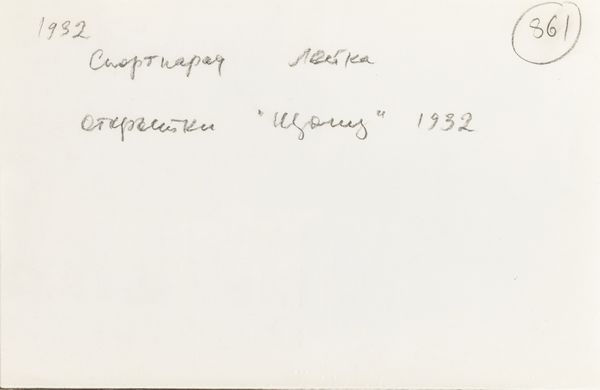 1932
861
Спортпарад Лейка
открытки "Изогиз" 1932